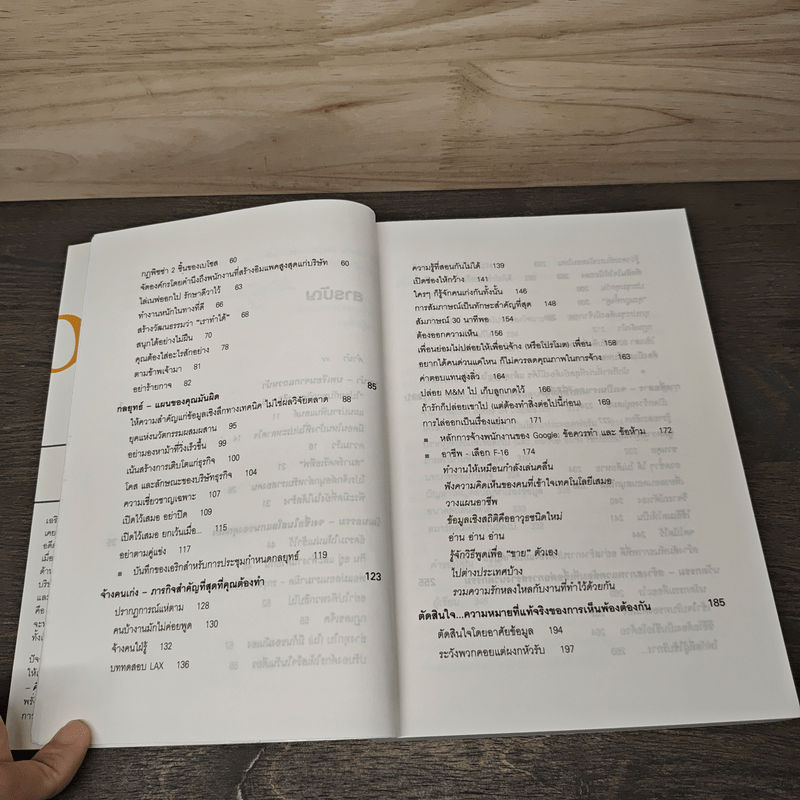 กฎพิซซ่า 2 ชิ้นของเบโซส 60
จัดองค์กรโดยคำนึงถึงพนักงานที่สร้างอิมแพคสูงสุดแก่บริษัท 60
ไล่เนฟออกไป รักษาดีวาไว้ 63
ทำงานหนักในทางที่ดี 66
สร้างวัฒนธรรมว่า "เราทำได้" 68
สนุกได้อย่างไม่ฝืน 70
คุณต้องใส่อะไรสักอย่าง 78
ตามข้าพเจ้ามา 81
อย่าร้ายกาจ 82
กลยุทธ์ – แผนของคุณมันผิด 85
ให้ความสำคัญแก่ข้อมูลเชิงลึกทางเทคนิค ไม่ใช่ผลวิจัยตลาด 88
ยุคแห่งนวัตกรรมผสมผสาน 95
อย่ามองหาม้าที่วิ่งเร็วขึ้น 99
เน้นสร้างการเติบโตแก่ธุรกิจ 100
โคส และลักษณะของบริษัทธุรกิจ 104
ความเชี่ยวชาญเฉพาะ 107
เปิดไว้เสมอ อย่าปิด 109
เปิดไว้เสมอ ยกเว้นเมื่อ... 115
อย่าตามดูคู่แข่ง 117
■ บันทึกของเอริกสำหรับการประชุมกำหนดกลยุทธ์ 119
จ้างคนเก่ง – ภารกิจสำคัญที่สุดที่คุณต้องทำ 123
ปรากฏการณ์แห่ตาม 128
คนบ้างานมักไม่ค่อยพูด 130
จ้างคนใฝ่รู้ 132
บททดสอบ LAX 136
ความรู้ที่สอนกันไม่ได้ 139
เปิดช่องให้กว้าง 141
ใครๆ ก็รู้จักคนเก่งกันทั้งนั้น 146
การสัมภาษณ์เป็นทักษะสำคัญที่สุด 148
สัมภาษณ์ 30 นาทีพอ 154
ต้องออกความเห็น 156
เพื่อนย่อมไม่ปล่อยให้เพื่อนจ้าง (หรือโปรโมต) เพื่อน 158
อยากได้คนด่วนแค่ไหน ก็ไม่ควรลดคุณภาพในการจ้าง 163
ค่าตอบแทนสูงลิ่ว 164
ปล่อย M&M ไป เก็บลูกเกดไว้ 166
ถ้ารักก็ปล่อยเขาไป (แต่ต้องทำสิ่งต่อไปนี้ก่อน) 169
การไล่ออกเป็นเรื่องแย่มาก 171
■ หลักการจ้างพนักงานของ Google: ข้อควรทำ และ ข้อห้าม 172
■ อาชีพ - เลือก F-16 174
ทำงานให้เหมือนกำลังเล่นคลื่น
ฟังความคิดเห็นของคนที่เข้าใจเทคโนโลยีเสมอ
วางแผนอาชีพ
ข้อมูลเชิงสถิติคืออาวุธชนิดใหม่
อ่าน อ่าน อ่าน
รู้จักวิธีพูดเพื่อ "ขาย" ตัวเอง
ไปต่างประเทศบ้าง
รวมความรักหลงใหลกับงานที่ทำไว้ด้วยกัน
ตัดสินใจ...ความหมายที่แท้จริงของการเห็นพ้องต้องกัน 185
ตัดสินใจโดยอาศัยข้อมูล 194
ระวังพวกคอยแต่ผงกหัวรับ 197